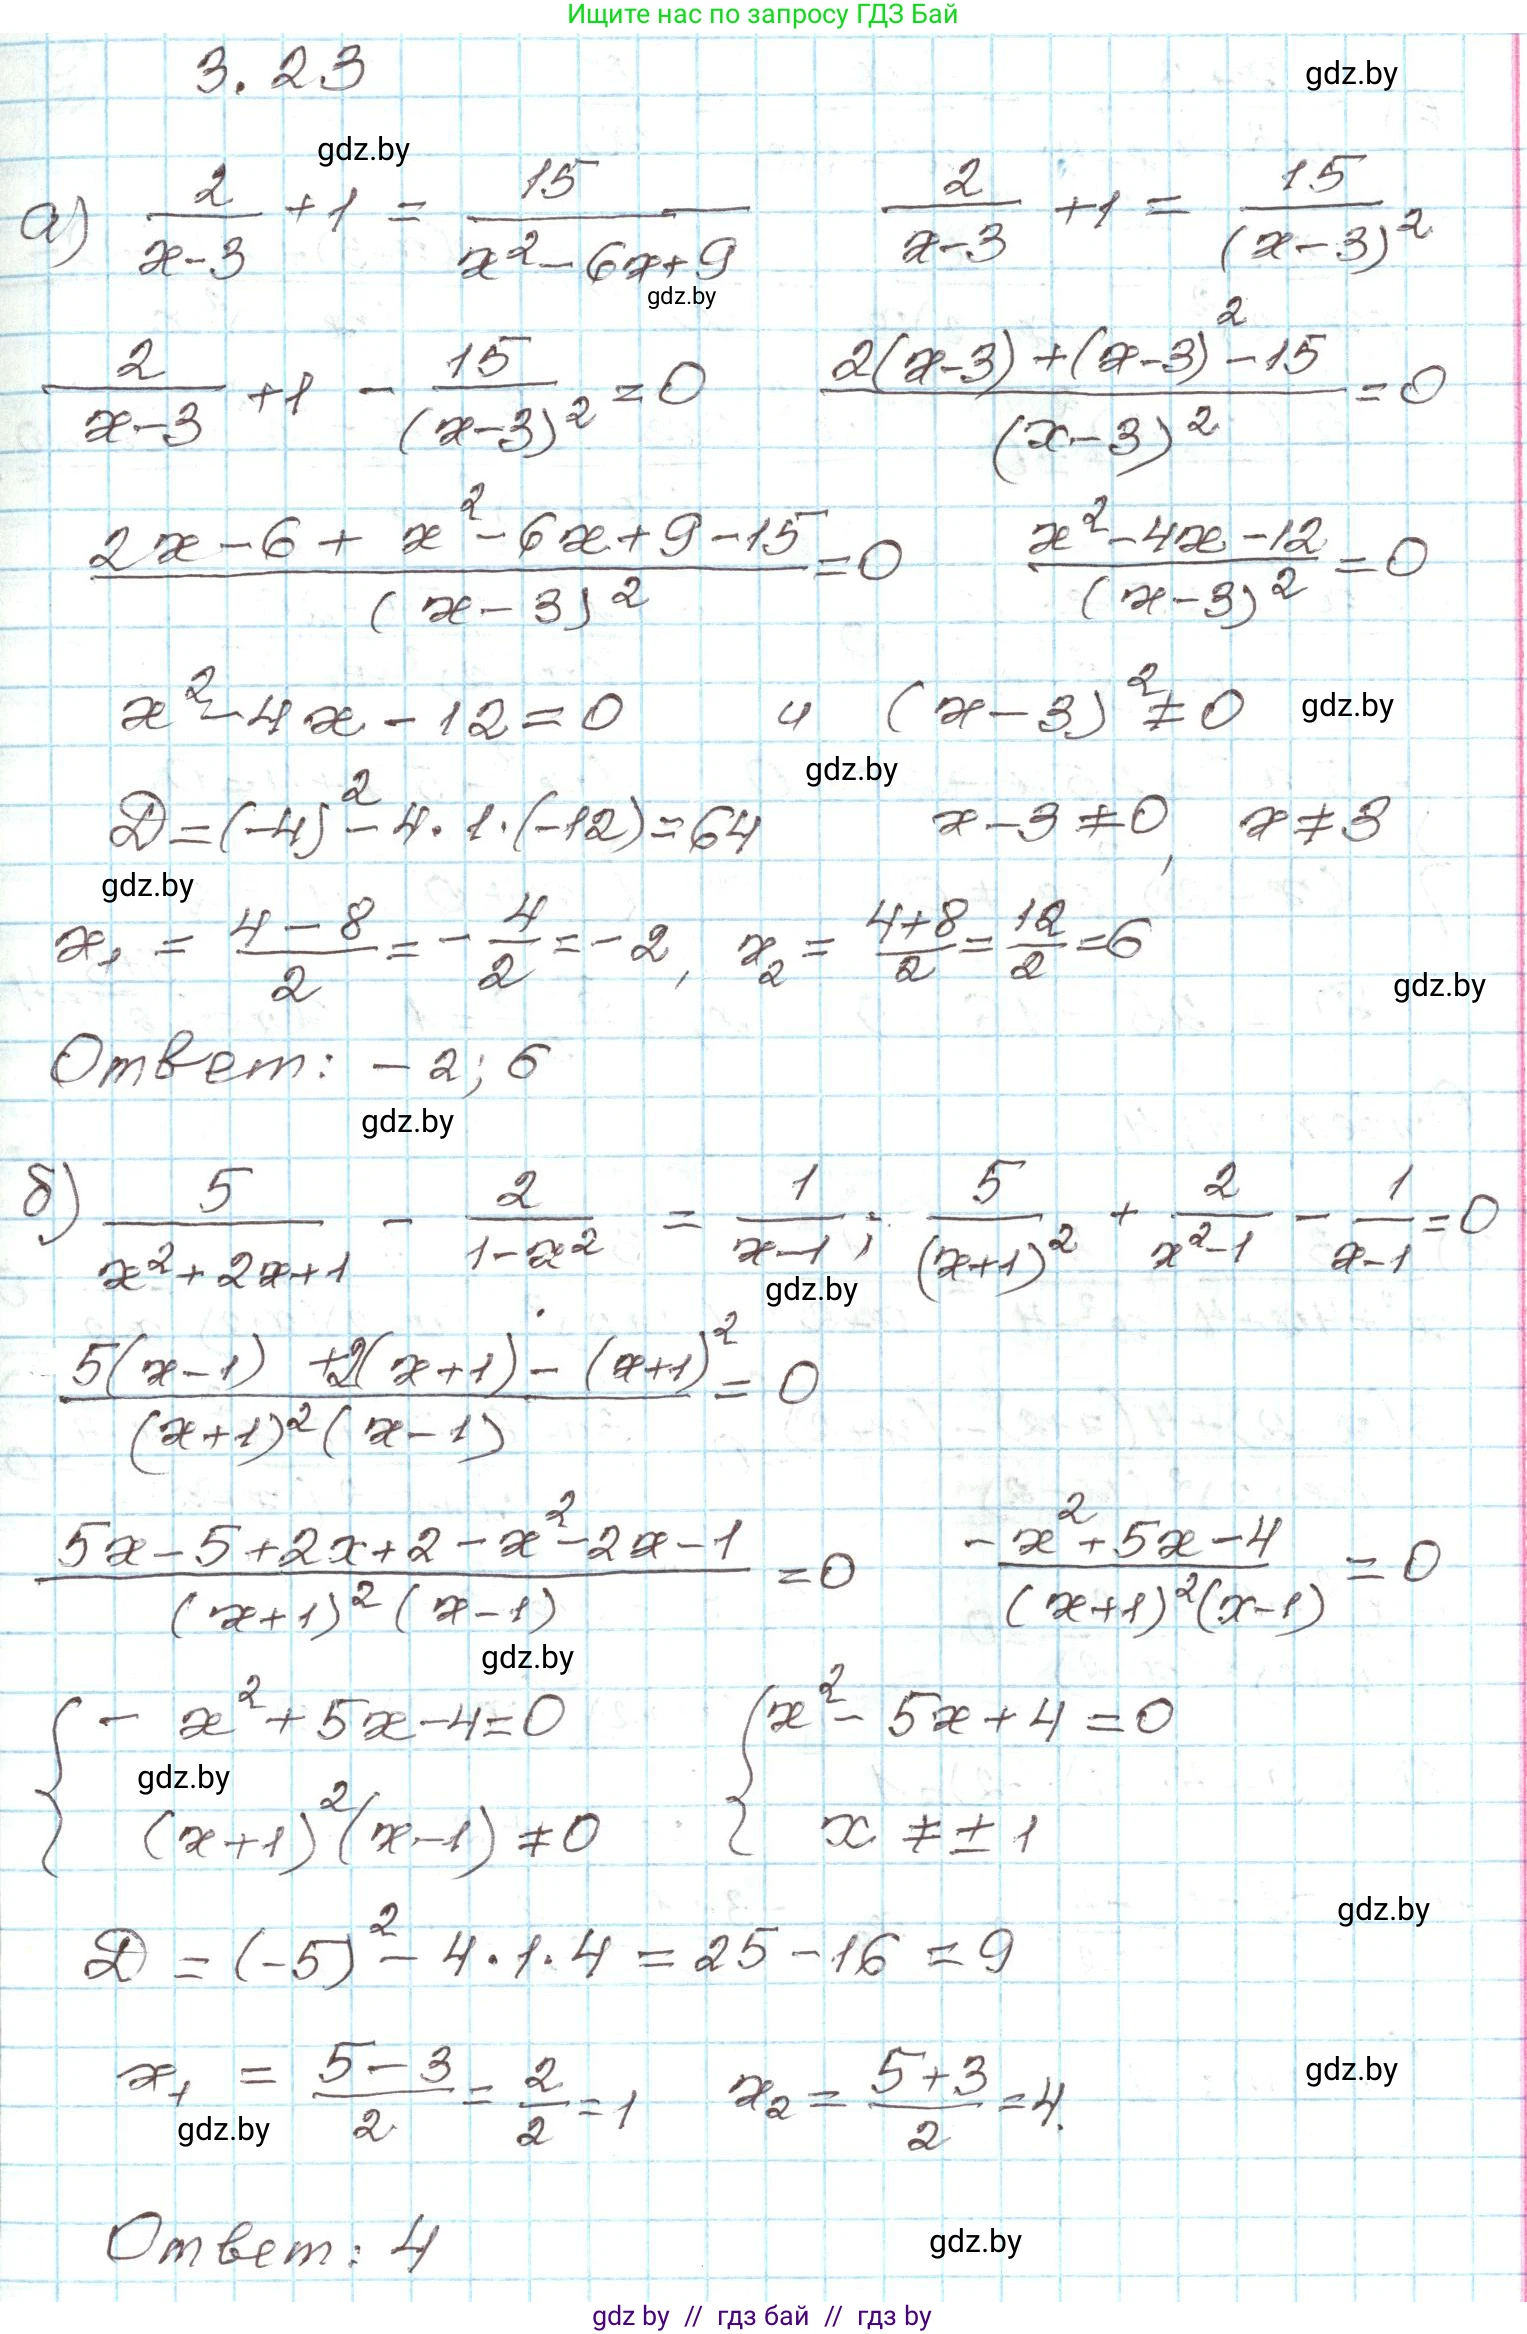 Ищите нас по запросу ГДЗ Бай
3.23 gdz.by
gdz.by
а) 2/(x-3) + 1 = 15/(x²-6x+9)   2/(x-3) + 1 = 15/(x-3)²
gdz.by
2/(x-3) + 1 - 15/(x-3)² = 0   (2(x-3)+(x-3)²-15)/(x-3)² = 0
(2x-6+x²-6x+9-15)/(x-3)² = 0   (x²-4x-12)/(x-3)² = 0
x²-4x-12=0 и (x-3)²≠0 gdz.by
gdz.by
D=(-4)²-4·1·(-12)=64   x-3≠0, x≠3
gdz.by
x₁ = (4-8)/2 = -4/2 = -2, x₂ = (4+8)/2 = 12/2 = 6
gdz.by
Ответ: -2; 6
gdz.by
б) 5/(x²+2x+1) - 2/(1-x²) = 1/(x-1); 5/(x+1)² + 2/(x²-1) - 1/(x-1) = 0
gdz.by
(5(x-1) +2(x+1)-(x+1)²)/((x+1)²(x-1)) = 0
(5x-5+2x+2-x²-2x-1)/((x+1)²(x-1)) = 0   (-x²+5x-4)/((x+1)²(x-1)) = 0
gdz.by
{ -x²+5x-4=0   { x²-5x+4=0
gdz.by
(x+1)²(x-1)≠0   x≠±1
gdz.by
D=(-5)²-4·1·4=25-16=9
x₁ = (5-3)/2 = 2/2 = 1   x₂ = (5+3)/2 = 4. gdz.by
gdz.by
Ответ: 4 gdz.by
gdz by // гдз бай // гдз by